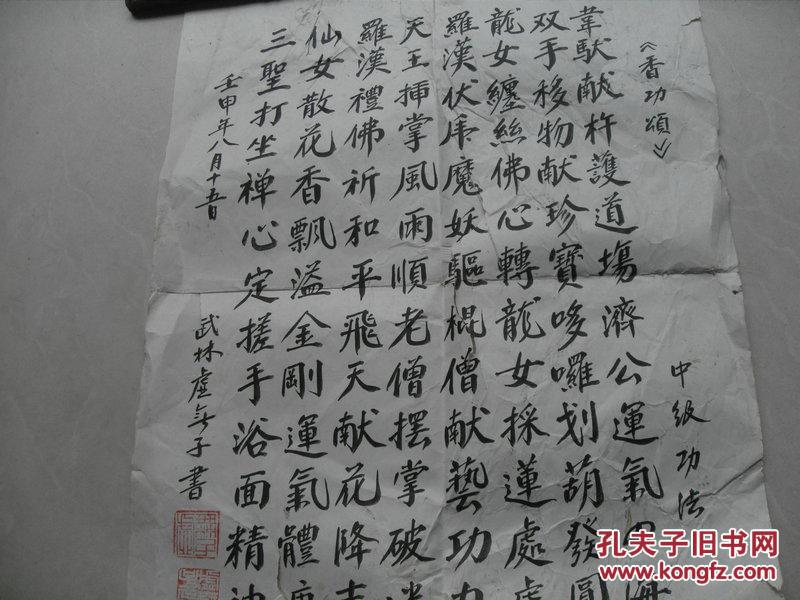 《香功頌》
中級功法
韋馱献杵護道場濟公運氣
双手移物献珍寶哆囉划葫發圓
龍女纏絲佛心轉龍女採蓮處處
羅漢伏虎魔妖驅棍僧献藝功力
天王揷掌風雨順老僧摆掌破迷
羅漢禮佛祈和平飛天献花降吉
仙女散花香飄溢金剛運氣體康
三聖打坐禅心定搓手浴面精神
壬申年八月十五日
武林虛無子書
孔夫子旧书网
kongfz.com